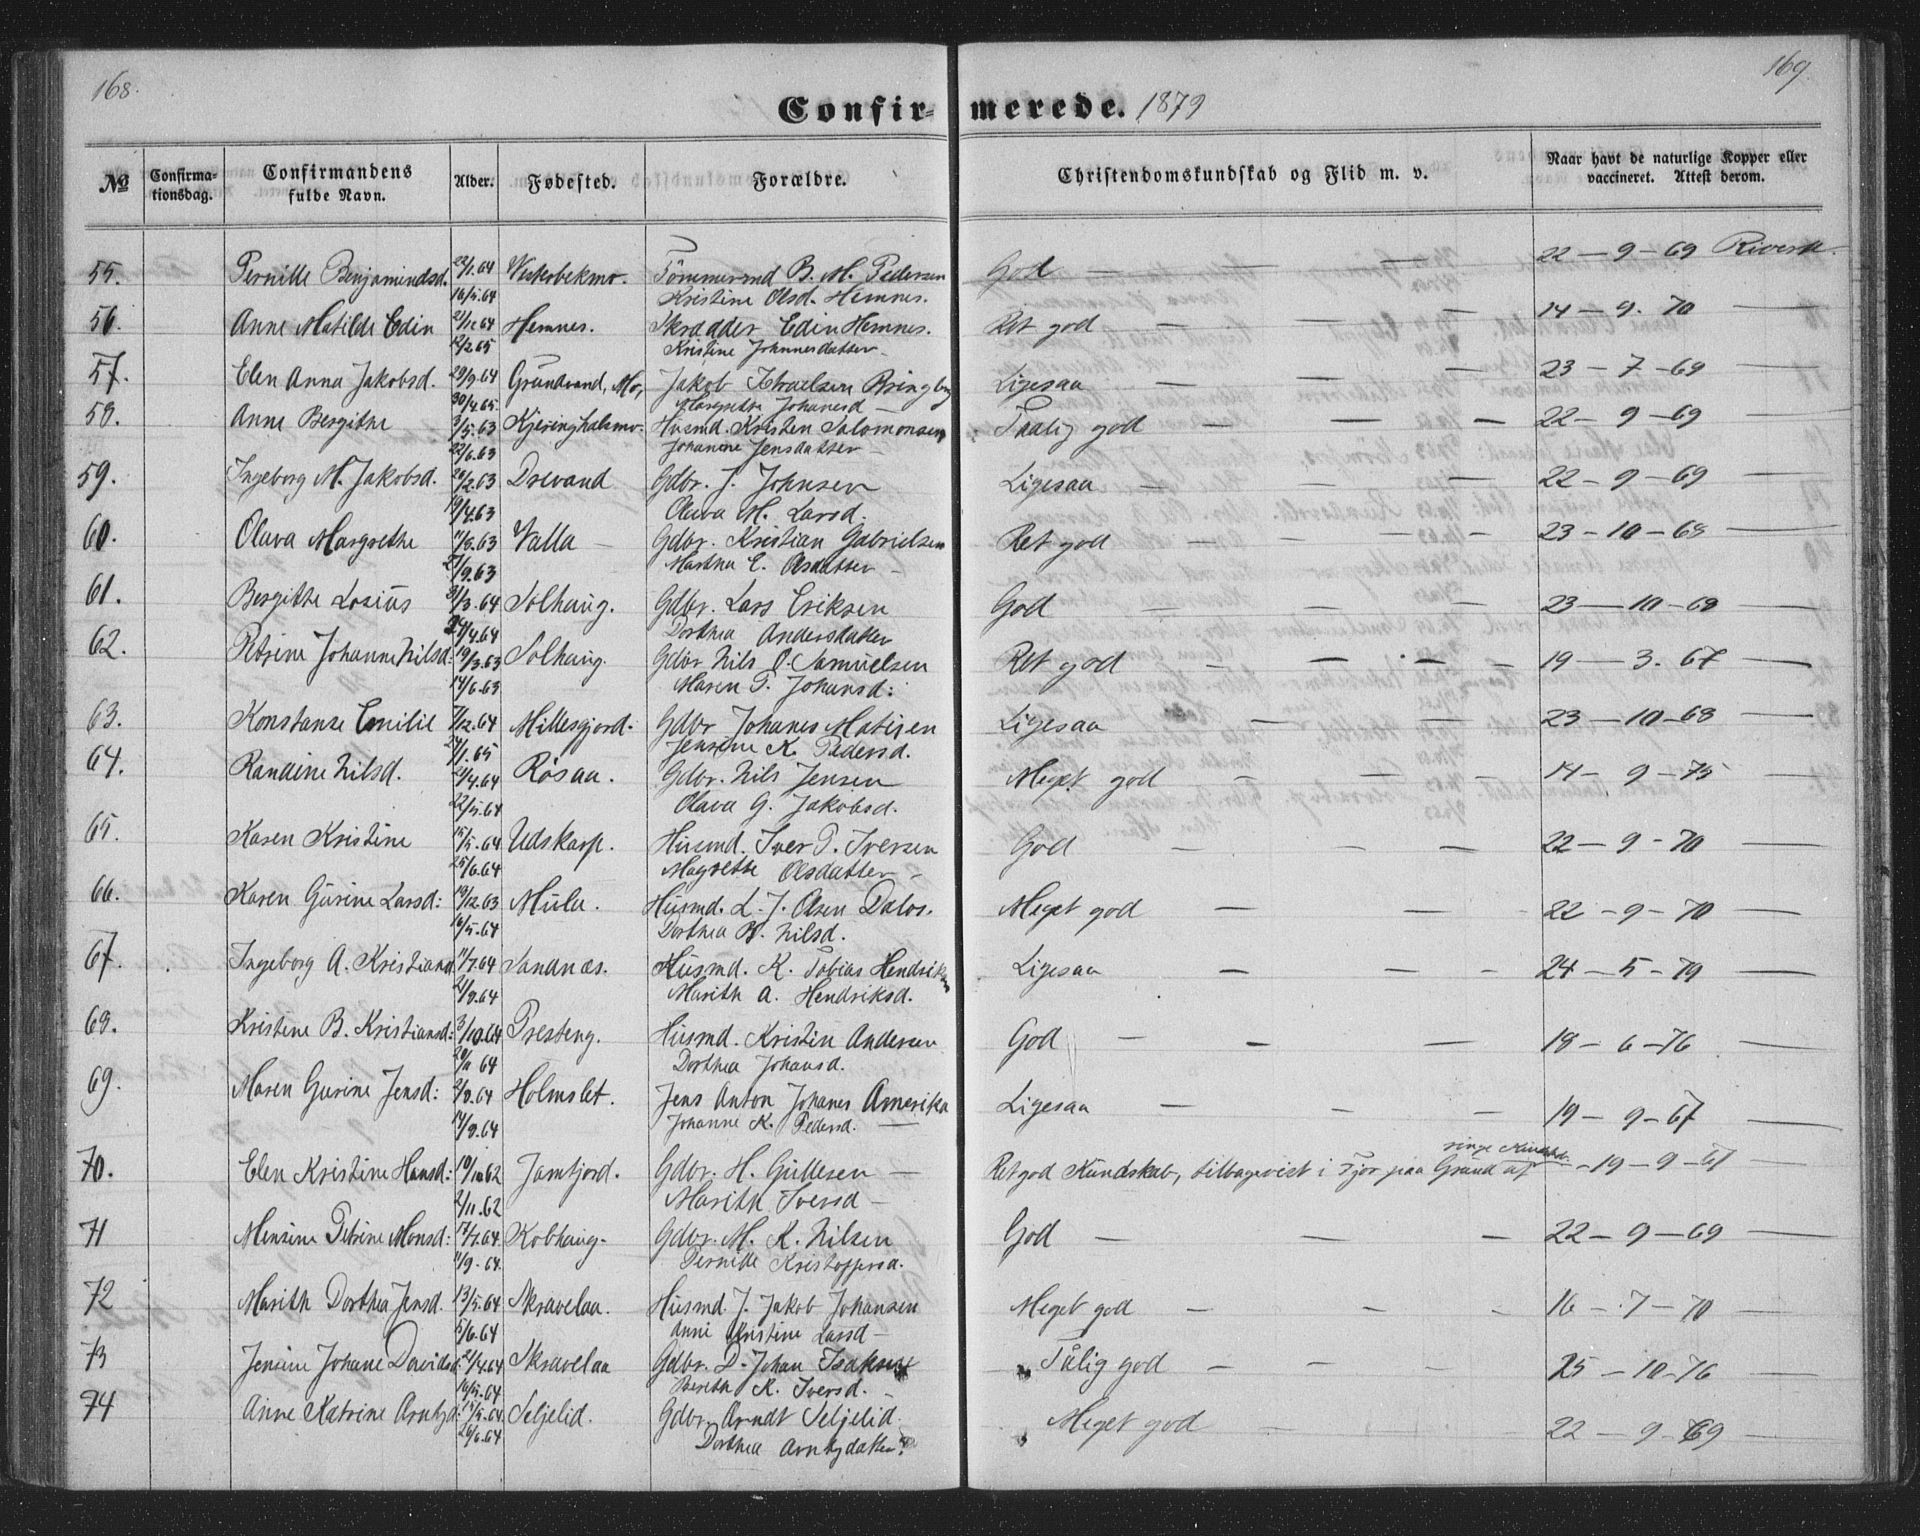 168.
169.
Confir- merede. 1879
No
Confirma-
tionsdag.
Confirmandens
fulde Navn.
Alder.
Fødested.
Forældre.
Christendomskundskab og Flid m. v.
Naar havt de naturlige Kopper eller
vaccineret. Attest derom.
55. Pernille Benjaminsd. 22/1.64 God — 22 — 9 — 69
Tömmermd B. M. Pedersen
16/5.64 Kristine Olsd. Hemnes.
56. Anne Matilde Edin 21/12 64 Hemnes. Skradder Edin Hemnes. Ret god — — — 14 — 9. 70 —
12/2 65 Kristine Johannesdatter
57. Elen Anna Jakobsd. 29/9.64 Grundvand, Mo, Jakob Bringby Ligesaa — — — 23 — 7 — 69 —
30/4.65. Margrethe Johanesd —
58. Anne Bergithe 3/5.63 Kjeringhalsmo. Husmd. Kristen Salomonsen Taalig god — — — 22 — 9 — 69 —
22/6.63 Johanne Jensdatter —
59. Ingeborg M. Jakobsd. 26/2.63 Drevand Gdbr. J. Johnsen Ligesaa — — — 22 — 9 — 69 —
19/4.63 Olava M. Larsd.
60. Olava Margrethe 11/8.63 Valla — Gdbr. Kristian Gabrielsen Ret god — — — 23 — 10 — 68 —
27/9.63 Martha E. Olsdatter —
61. Bergitte Losius 31/3.64 Solhaug. Gdbr. Lars Eriksen God — — — 23 — 10 — 68 —
24/4.64 Dorthea Andersdatter
62. Petrine Johanne Nilsd: 19/3.63 Solhaug. Gdbr Nils O. Samuelsen Ret god — — — 19 — 3. 67 —
14/6.63 Maren P. Johansd:
63. Konstanse Emilie 7/12.64 Millesjord. Gdbr Johanes Matisen Ligesaa — — — 23 — 10 — 68 —
24/1.65 Jensine K. Pedersd.
64. Randine Nilsd. 21/4.64 Rösaa. Gdbr. Nils Jensen Meget god — — — 14 — 9 — 75 —
22/5.64 Olava G. Jakobsd.
65. Karen Kristine 15/5.64 Udskarp. Husmd. Iver P. Iversen God — — — 22 — 9 — 70 —
25/6.64 Magrethe Olsdatter —
66. Karen Gurine Larsd: 19/12.63 Mula. Husmd. L. J. Olsen Dalos. Meget god — — — 22 — 9 — 70 —
16/5.64 Dorthea B. Nilsd.
67. Ingeborg A. Kristiansd 11/7.64 Sandnæs. Husmd. K. Tobias Hendriksen Ligesaa — — — 24 — 5 — 79 —
21/9.64 Marith A. Hendriksd.
68. Kristine B. Kristiansd: 3/10.64 Presteng. Husmd. Kristen Andersen God — — — 18 — 6 — 76 —
20/11 64 Dorthea Johansd.
69. Maren Gurine Jensd: 2/8.64 Holmslet. Jens Anton Johanes Amerika Ligesaa — — — 19 — 9 — 67 —
14/9.64 Johanne K. Pedersd. —
70. Elen Kristine Hansd: 19/10 62 Jamtjord. Gdbr. H. Gullesen — Ret god Kundskab, tilbagevist i Fjor paa Grund af ringe Kundskab. — 19 — 9 — 67 —
2/11.62 Marith Iversd —
71 Mensine Petrine Monsd: 17/7.64. Kobhaug. Gdbr. M. K. Nilsen God — — — 22 — 9 — 69 —
11/9.64. Pernille Kristoffersd.
72 Marith Dorthea Jensd. 13/5.64 Skravelaa. Husmd. J. Jakob Johansen Meget god — — — 16 — 7 — 70 —
5/6.64 Anne Kristine Larsd —
73 Jensine Johane Davidsd. 21/4.64 Skravelaa Gdbr. D. Johan Isaksen Tålig god — — — 25 — 10 — 76 —
16/5.64 Berith K. Iversd. —
74 Anne Katrine Arntzd: 15/5.64. Seljelid. Gdbr. Arndt Seljelid. Meget god — — — 22 — 9 — 69 —
26/6.64 Dorthea Arntzdatter.